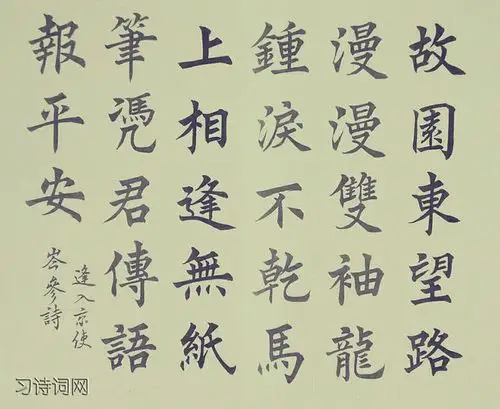 故園東望路
漫漫雙袖龍
鍾淚不乾馬
上相逢無紙
筆憑君傳語
報平安
逢入京使
岑參詩
习诗词网